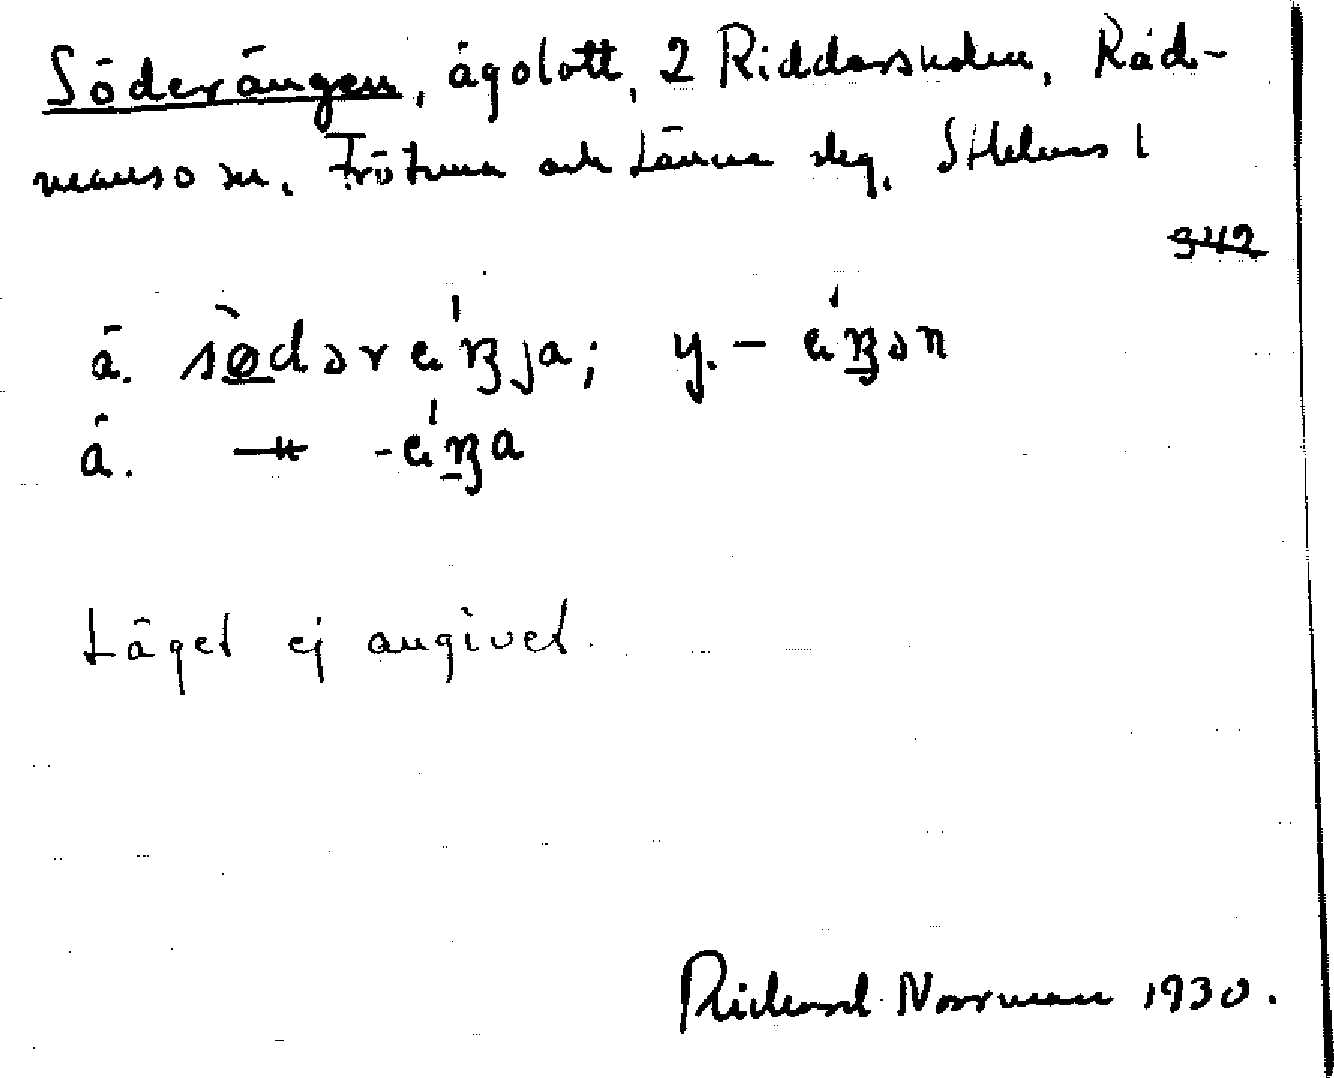 Söderängen, ägolott, 2 Riddersholm, Råd-
manso sn. Frötuna och Länna skg, Sthlms l
342
ä. sø̀dərǽŋja; y. - ǽŋən
ä. –"– -ǽŋa
Läget ej angivet.
Richard Norrman 1930.